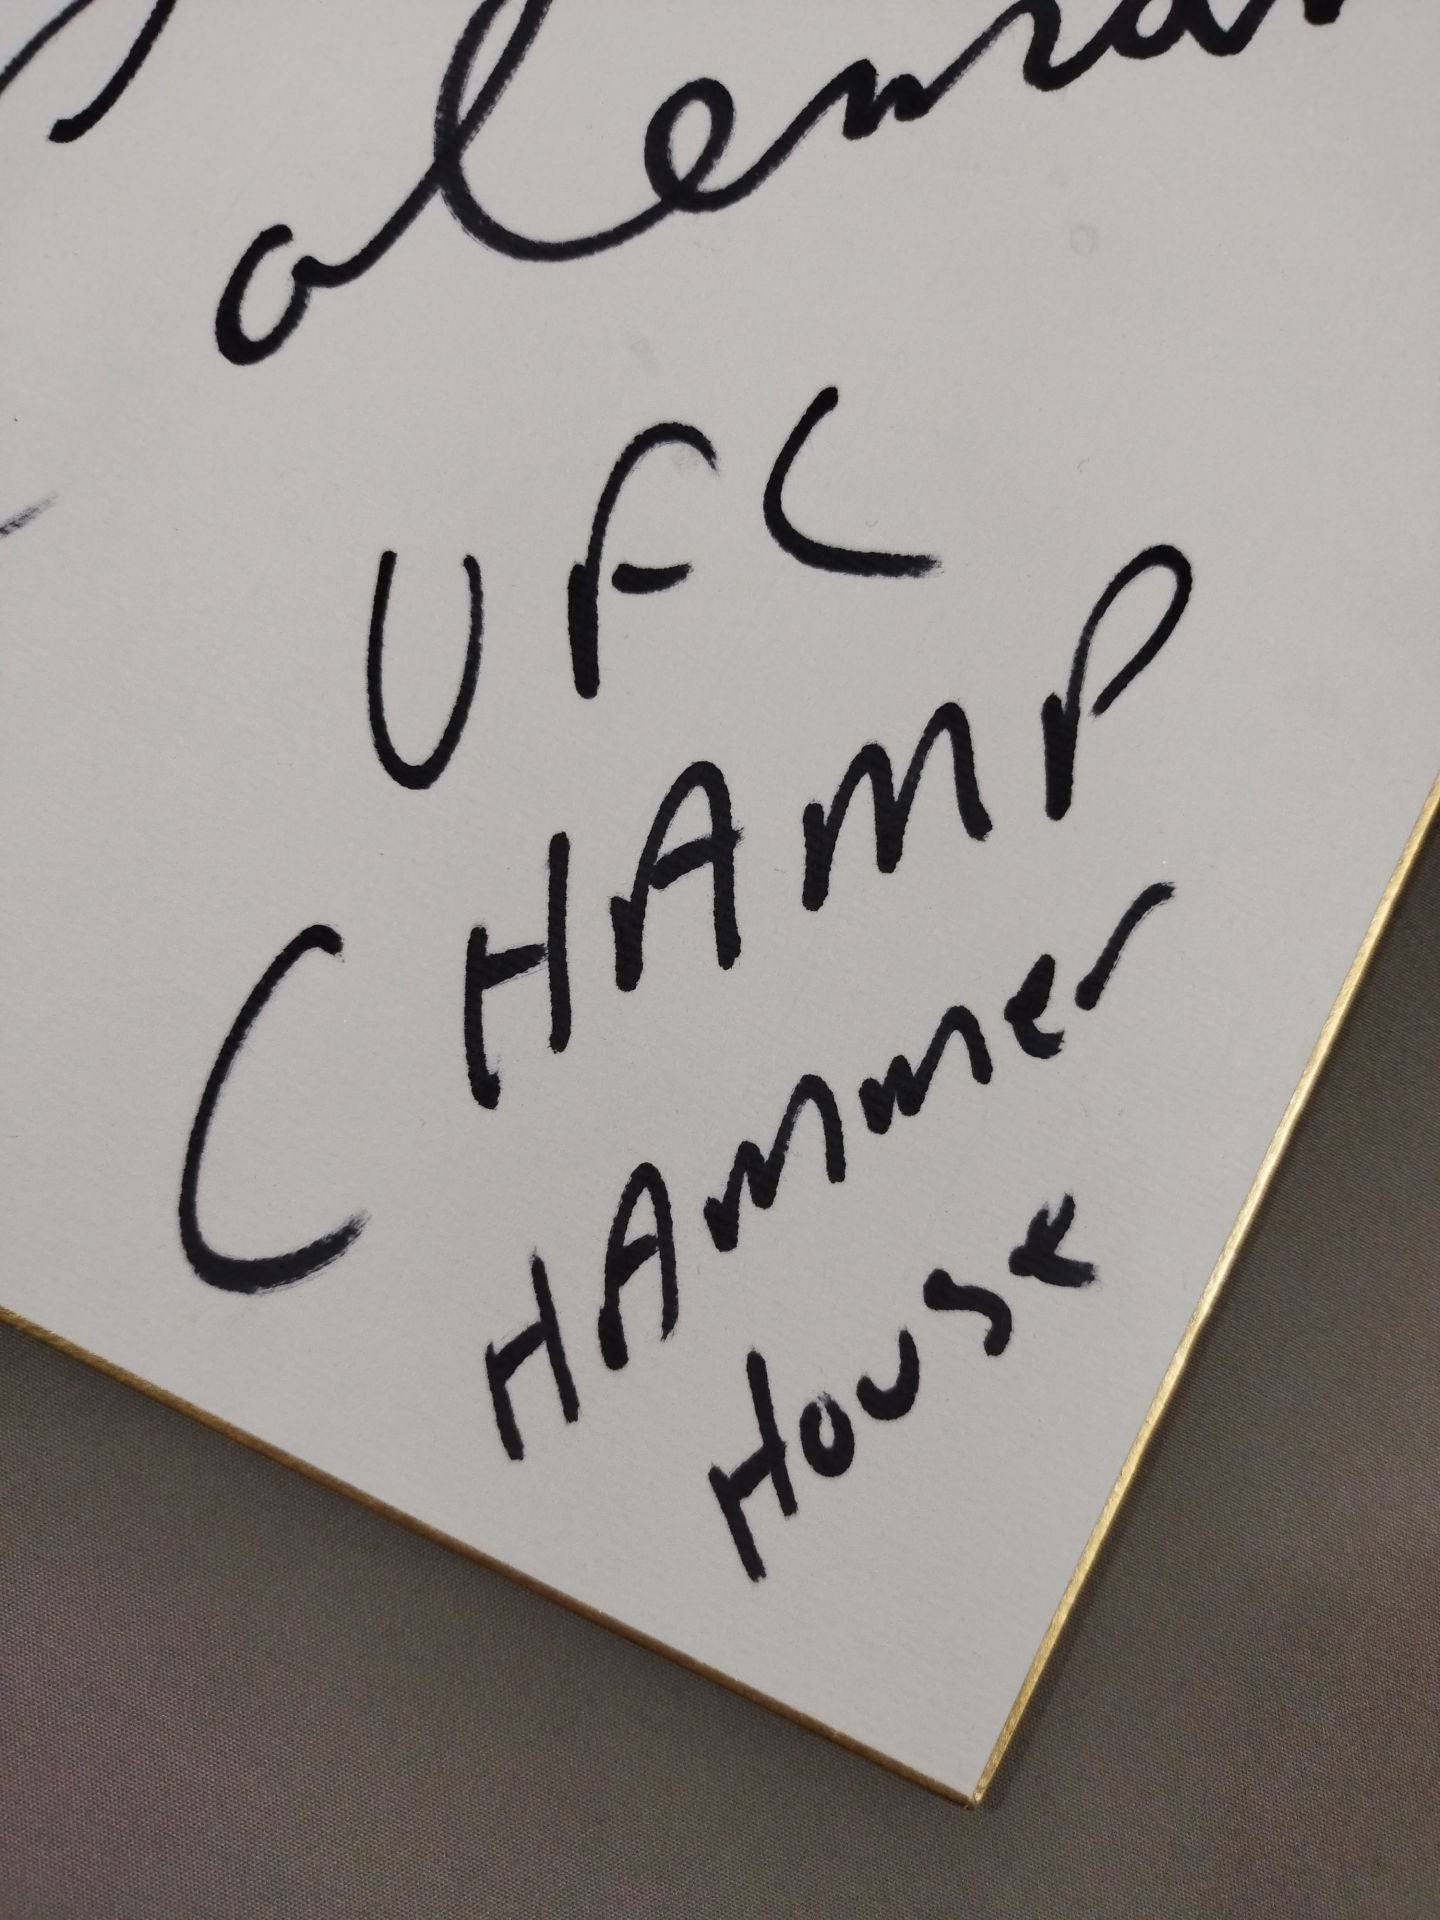 Coleman
UFC
CHAMP
HAMMER
HOUSE